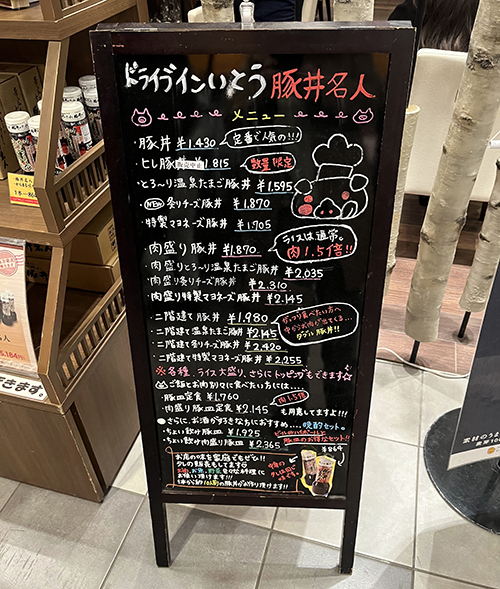 ドライブインいとう 豚丼名人
メニュー
・豚丼 ¥1,430 定番で人気の!!!
・ヒレ豚 ¥1,815 数量限定
・とろ〜り温泉たまご豚丼 ¥1,595
・NEW 炙りチーズ豚丼 ¥1,870
・特製マヨネーズ豚丼 ¥1,705
・肉盛り豚丼 ¥1,870 ライスは通常。
肉1.5倍!!
・肉盛りとろ〜り温泉たまご豚丼 ¥2,035
・肉盛り炙りチーズ豚丼 ¥2,310
・肉盛り特製マヨネーズ豚丼 ¥2,145
・二階建て豚丼 ¥1,980
・二階建て温泉たまご豚丼 ¥2,145
・二階建て炙りチーズ豚丼 ¥2,420
・二階建て特製マヨネーズ豚丼 ¥2,255
ガッツリ食べたい方へ
中からお肉が出てくる...
ダブル豚丼!!
※各種、ライス大盛り、さらにトッピングもできます☆
ご飯とお肉別々に食べたい方には....
・豚皿定食 ¥1,760 肉1.5倍
・肉盛り豚皿定食 ¥2,145 も用意してますよ!!!
さらに、お酒が好きな方におすすめ....晩酌セット。
・ちょい飲み豚皿 ¥1,925
・ちょい飲み肉盛り豚皿 ¥2,365
豚皿のお得なセット!!
お店の味を家庭でもぜひ!!
タレの販売もしてます
お肉、お魚、野菜など々なお料理に
お使い頂けます!!!
1本で約10人前の豚丼がお作り頂けます!!
¥864